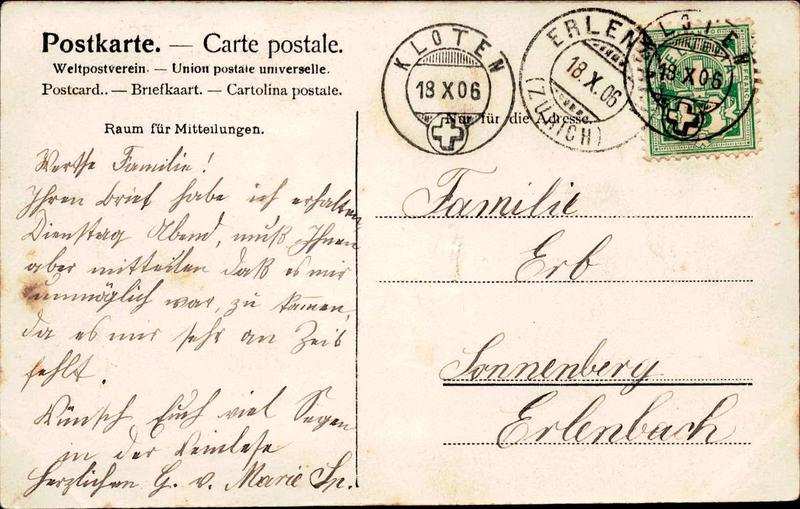 Postkarte. — Carte postale.
Weltpostverein. — Union postale universelle.
Postcard. — Briefkaart. — Cartolina postale.
Raum für Mitteilungen.
Nur für die Adresse.
KLOTEN
18 X 06
ERLEN
18.X.06
(ZÜRICH)
KLOTEN
18 X 06
Werthe Familie!
Ihren Brief habe ich erhalten
Dienstag Abend, muß Ihnen
aber mitteilen daß es mir
unmöglich war, zu kommen,
da es mir sehr an Zeit
fehlt.
Wünsch Euch viel Segen
in der Weinlese
Herzlichen G. v. Marie
Familie
Erb
Sonnenberg
Erlenbach